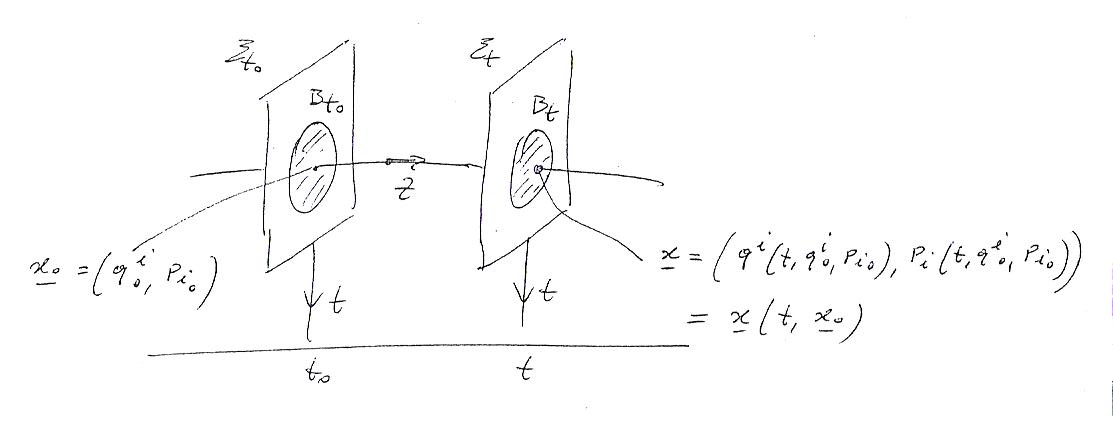 Σt₀ Σt
Bt₀ Bt
Z
x₀ = (q₀ⁱ, pᵢ₀) x = (qⁱ(t, q₀ⁱ, pᵢ₀), pᵢ(t, q₀ⁱ, pᵢ₀))
t t
= x(t, x₀)
t₀ t